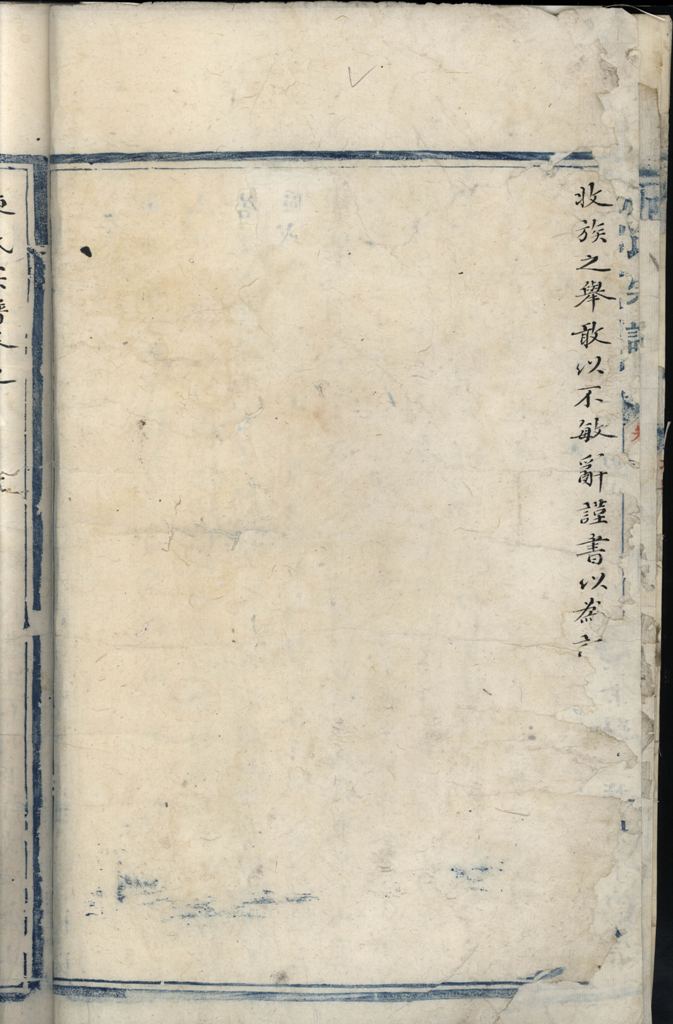 收族之舉敢以不敏辭謹書以為言
氏宗譜卷之